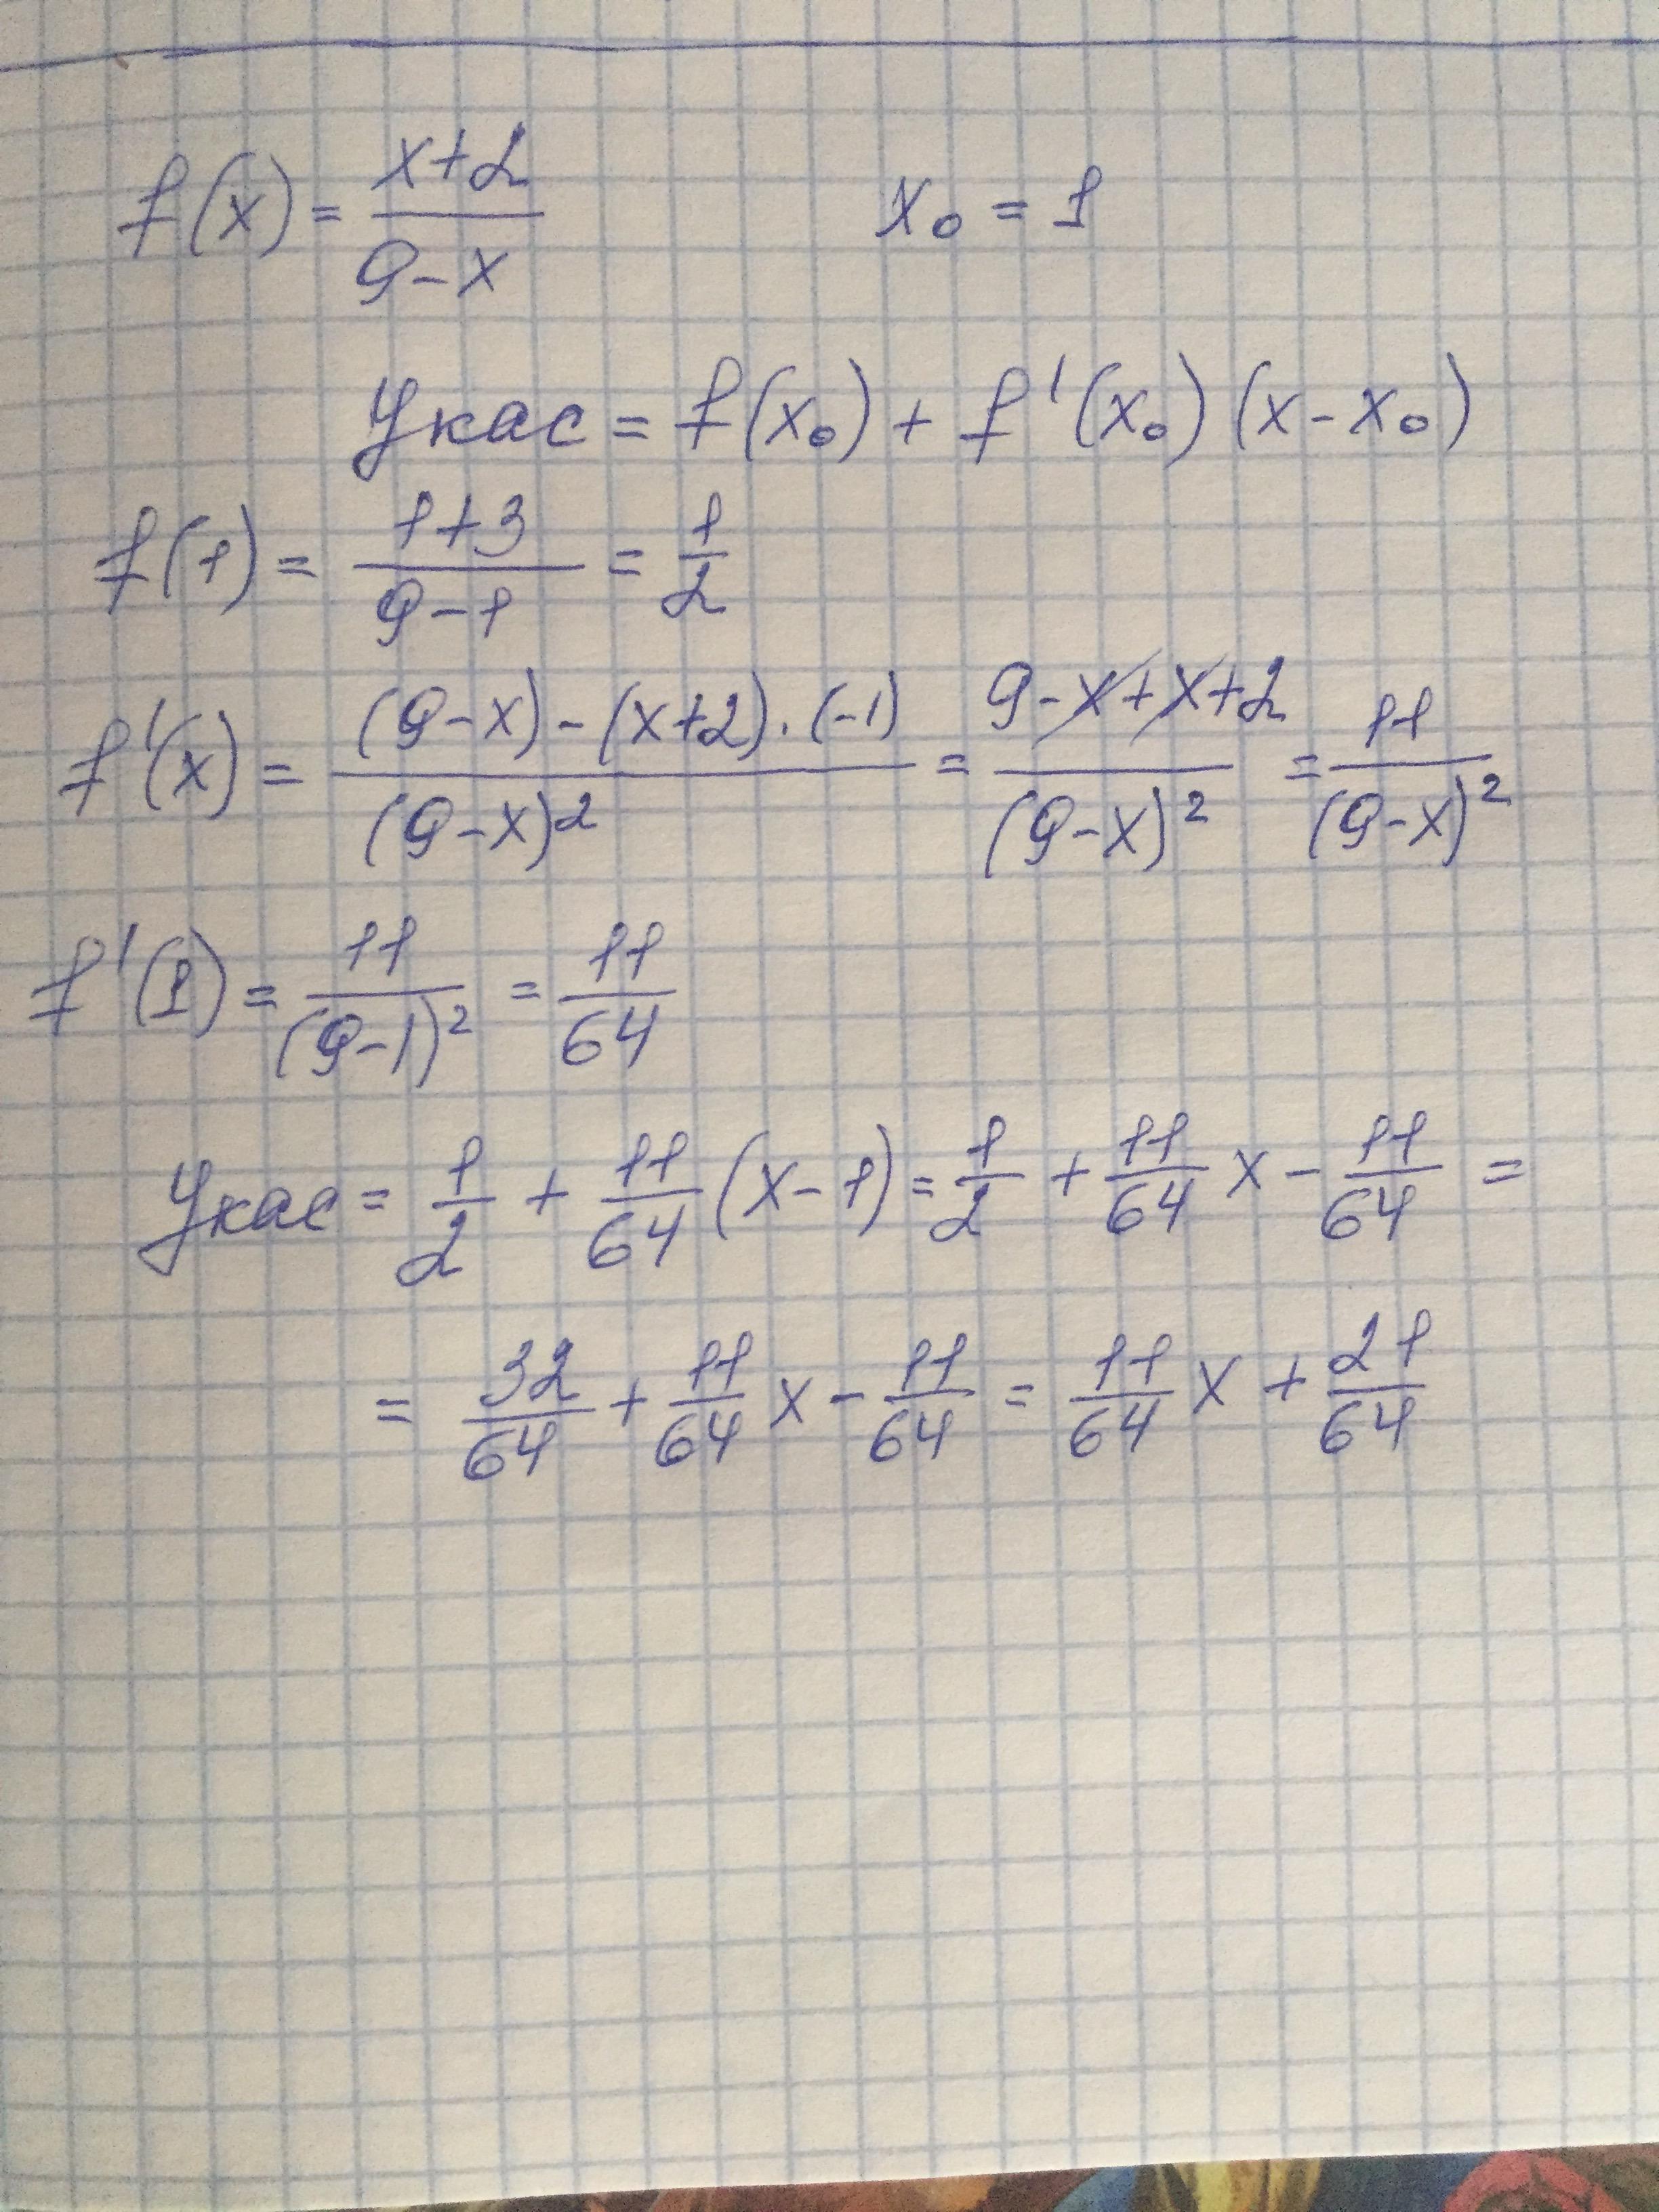 f(x) = (x+2)/(9-x)    x₀ = 1
Укас = f(x₀) + f'(x₀)(x-x₀)
f(1) = (1+3)/(9-1) = 1/2
f'(x) = ((9-x)-(x+2)·(-1))/(9-x)² = (9-x+x+2)/(9-x)² = 11/(9-x)²
f'(1) = 11/(9-1)² = 11/64
Укас = 1/2 + 11/64(x-1) = 1/2 + 11/64 x - 11/64 =
= 32/64 + 11/64 x - 11/64 = 11/64 x + 21/64